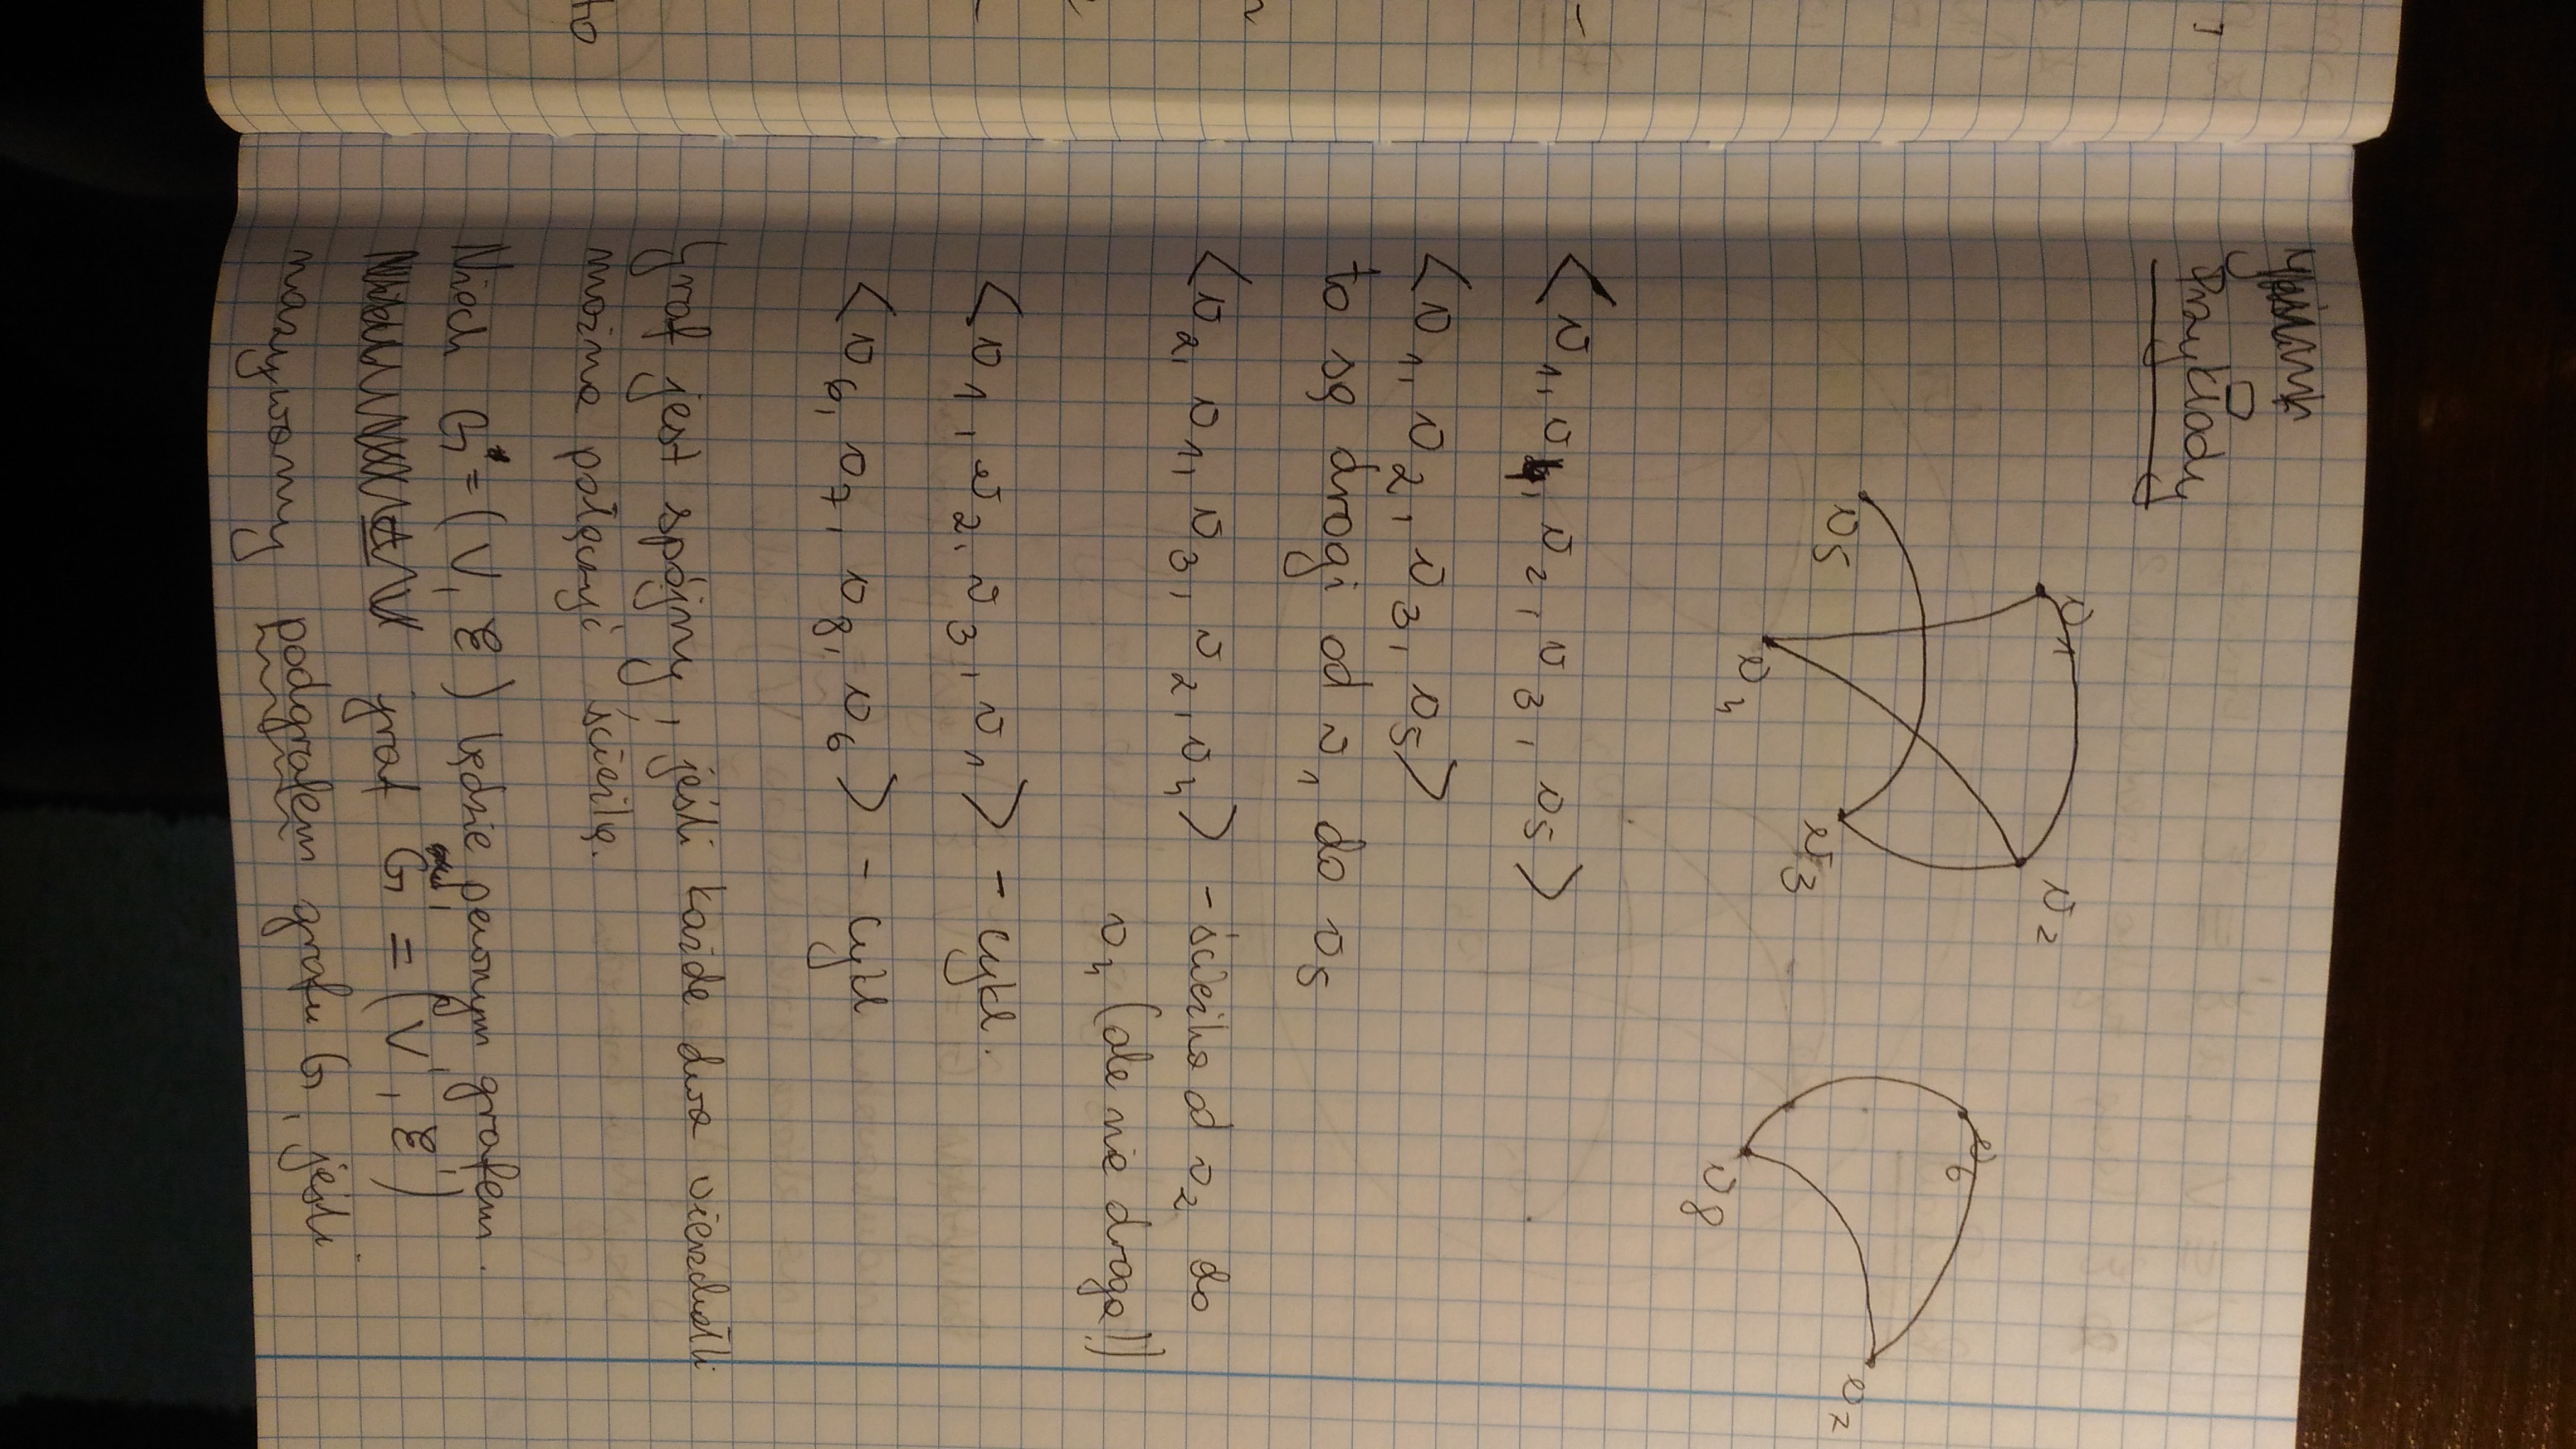 Przykłady
v1
v2
v6
v5
v7
v3
v4
v8
<v1, v4, v2, v3, v5>
<v1, v2, v3, v5>
to są drogi od v1 do v5
<v2, v1, v3, v2, v4> - ścieżka od v2 do
v4 (ale nie droga!)
<v1, v2, v3, v1> - cykl.
<v6, v7, v8, v6> - cykl
Graf jest spójny, jeśli każde dwa wierzchołki
można połączyć ścieżką.
Niech G = (V, E) będzie pewnym grafem.
graf G' = (V', E')
nazywamy podgrafem grafu G, jeśli
to